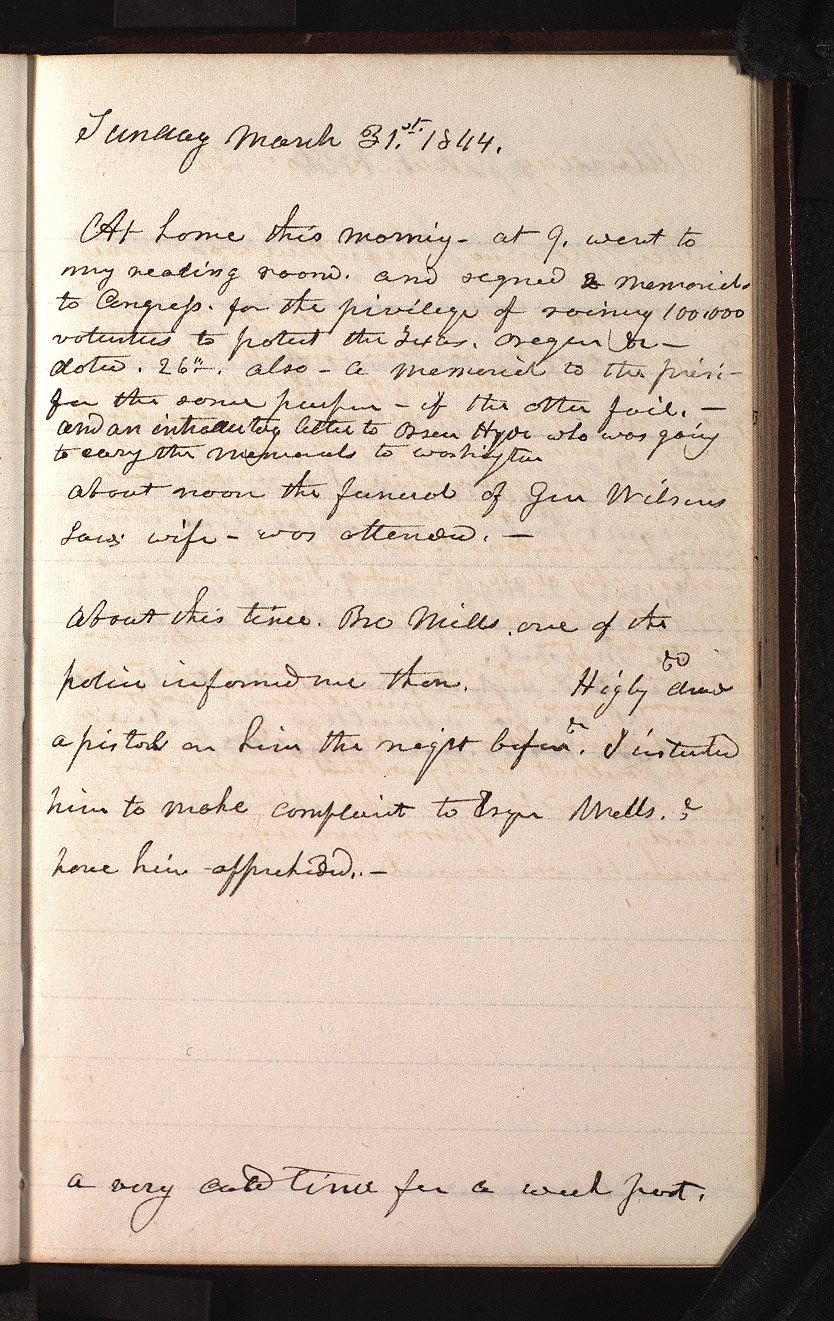 Sunday March 31.st. 1844.
At home this mornig - at 9. went to
my reading room. and signed 2 memorials
to Congress. for the privilege of raising 100,000
volunteers to protect the Texas. Oregon &c -
dated. 26th. also - a memorial to the presi-
for the same purpose - if the other fail. -
and an introductory letter to Orson Hyde who was going
to carry the memorials to washington
about noon the funeral of Gen Wilsons
Laws wife - was attended. -
about this time. Bro Mills. one of the
police informed me than. Higby drew
a pistol on him the night before. I instructed
him to make complaint to Esqr Wells. &
have him apprehended. -
a very cold time for a week past.